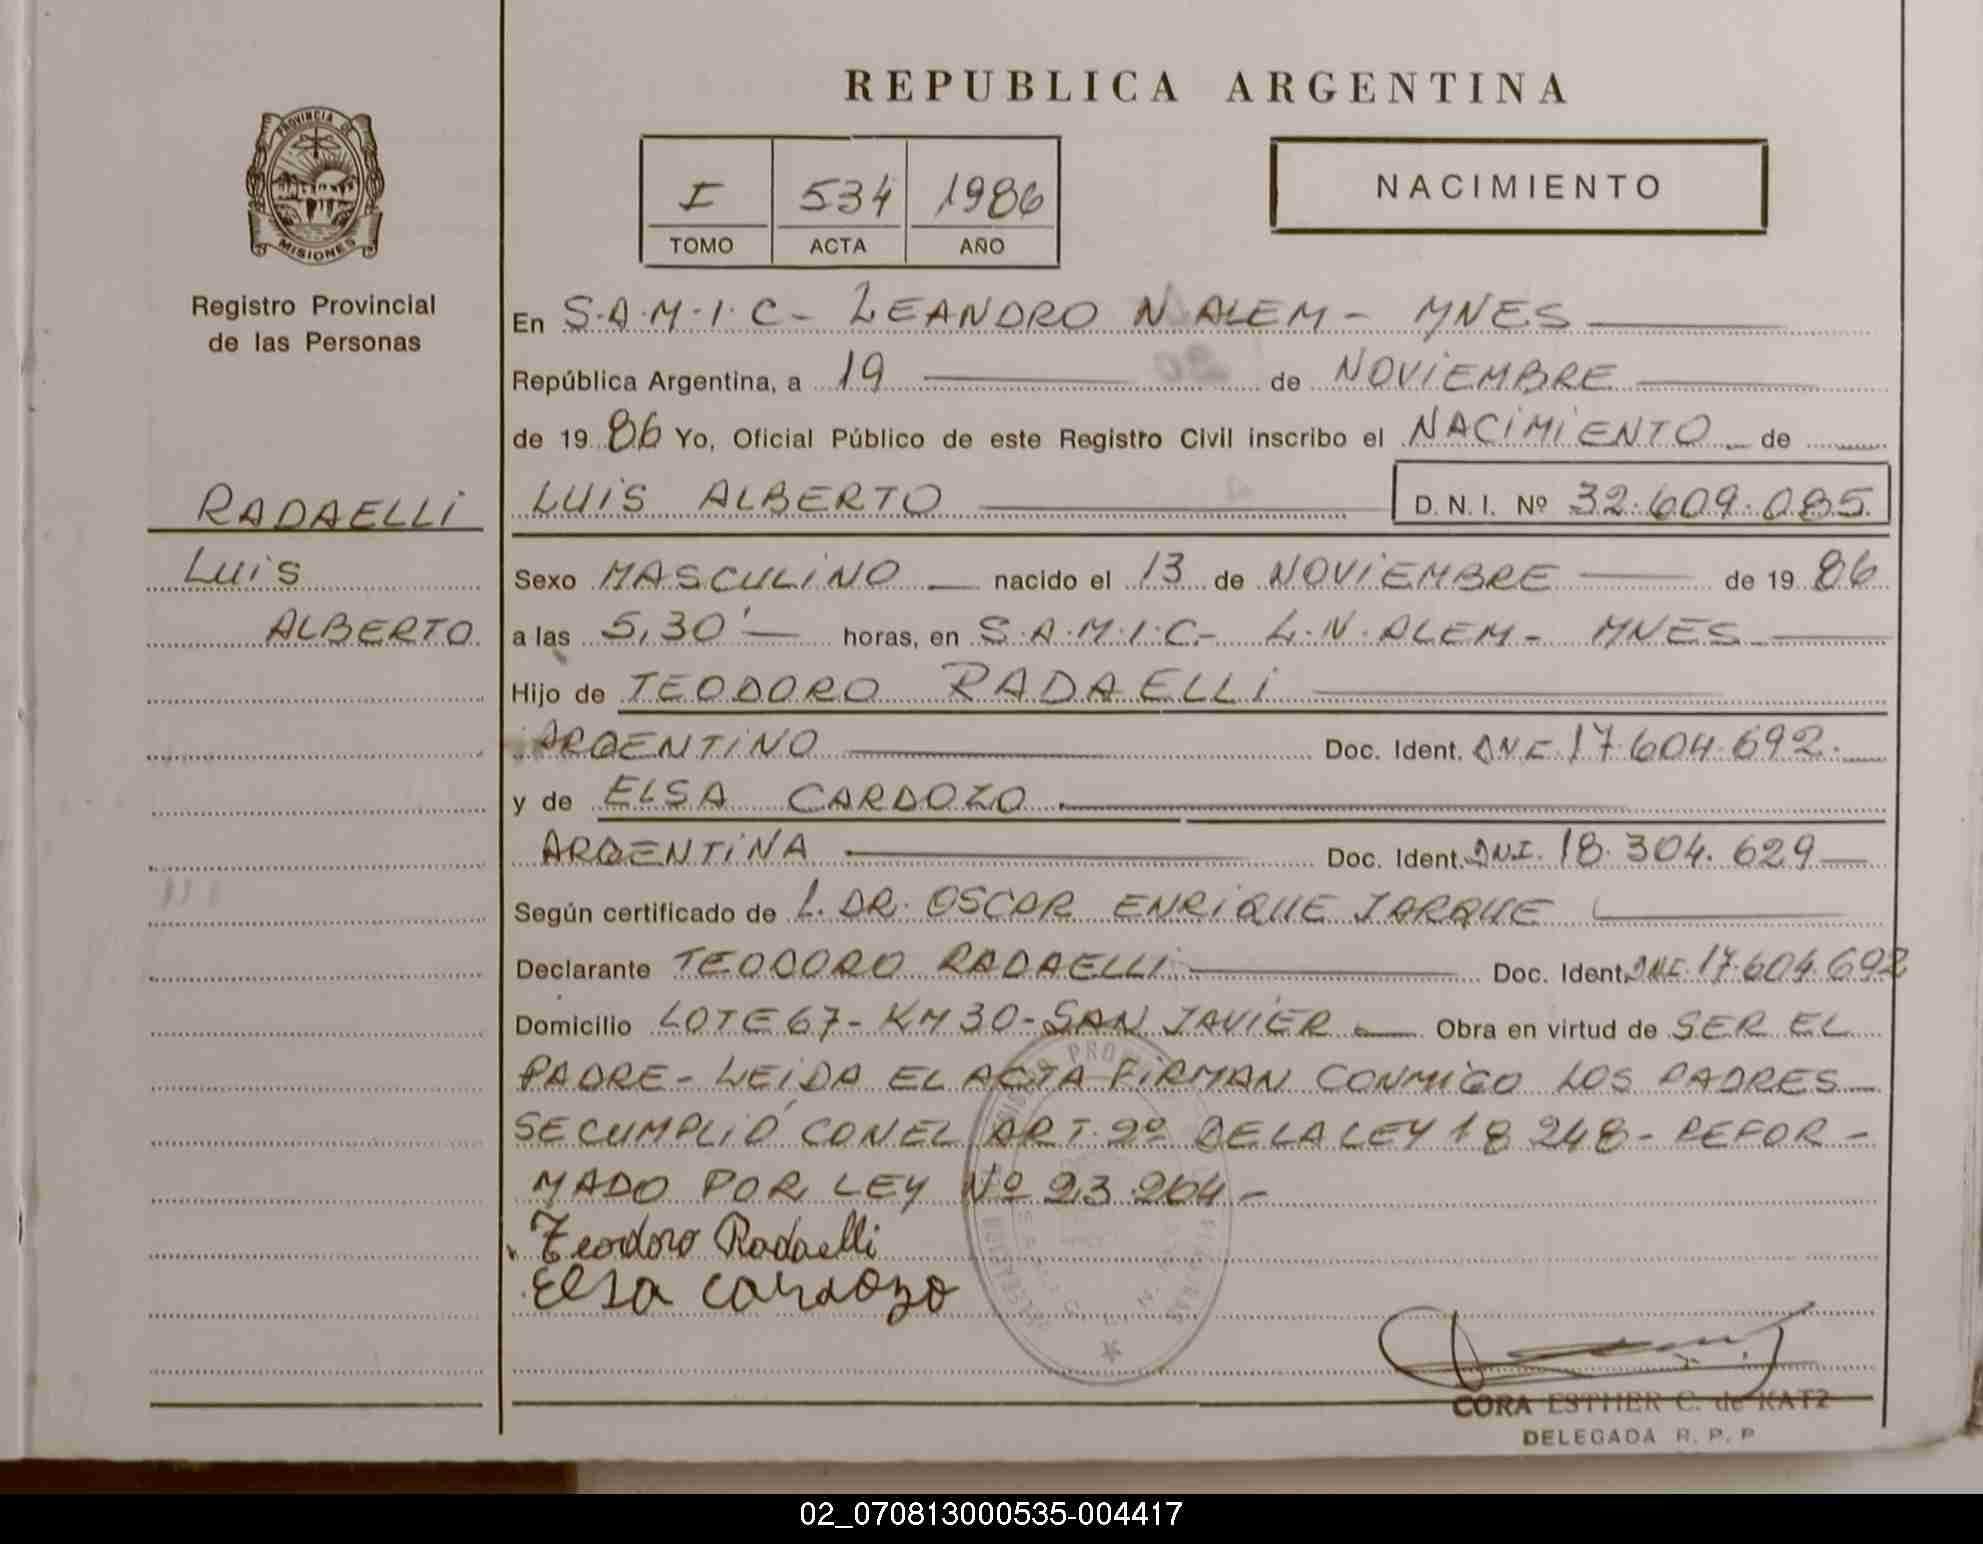 REPUBLICA ARGENTINA
PROVINCIA DE
MISIONES
Registro Provincial
de las Personas
I 534 1986
TOMO ACTA AÑO
NACIMIENTO
En S.A.M.I.C- LEANDRO N ALEM - MNES
República Argentina, a 19 de NOViEMBRE
de 19 86 Yo, Oficial Público de este Registro Civil inscribo el NACiMiENTO de
RADAELLi
LUiS ALBERTO D. N. I. Nº 32.609.085
LUiS
ALBERTO
Sexo MASCULiNO nacido el 13 de NOViEMBRE de 19 86
a las 5,30' horas, en S.A.M.I.C- L.N.ALEM- MNES
Hijo de TEODORO RADAELLi
ARGENTiNO Doc. Ident. DNI 17.604.692.
y de ELSA CARDOZO
ARGENTiNA Doc. Ident. DNI. 18.304.629
Según certificado de L. DR. OSCAR ENRiQUE JARQUE
Declarante TEODORO RADAELLi Doc. Ident. DNI. 17.604.692
Domicilio LOTE 67- KM 30-SAN JAViER Obra en virtud de SER EL
PADRE- LEiDA EL ACTA FiRMAN CONMiGO LOS PADRES
SE CUMPLiÓ CON EL ART. 2º DE LA LEY 18 248- REFOR-
MADO POR LEY Nº 23.264-
Teodoro Radaelli
Elsa Cardozo
CORA ESTHER C. de KATZ
DELEGADA R. P. P
02_070813000535-004417